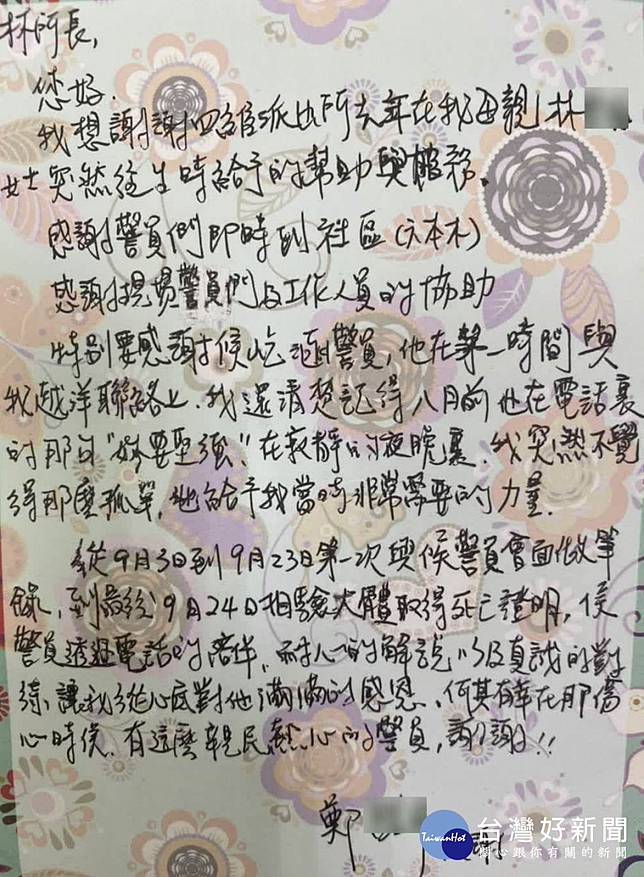 林所長,
您好.
我想謝謝四維派出所去年在我母親林
女士突然往生時給予的幫助與服務.
感謝警員們即時到社區(六本木)
感謝現場警員們及工作人員的協助
特別要感謝候屹廷警員,他在第一時間與
我越洋聯絡上.我還清楚記得八月前他在電話裏
的那句"妳要堅強".在寂靜的夜晚裏.我突然不覺
得那麼孤單,他給予我當時非常需要的力量.
從9月3日到9月23日第一次與候警員會面做筆
錄,到最終9月24日相驗大體取得死亡證明,侯
警員透過電話的陪伴,耐心的解說以及真誠的對
待讓我從心底對他滿滿的感恩.何其有幸在那傷
心時候.有這麼親民熱心的警員,謝謝!!
鄭
TaiwanHot 台灣好新聞
關心跟你有關的新聞